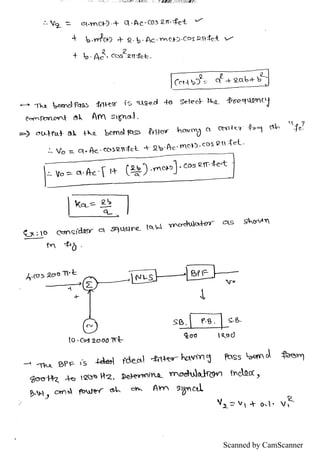 ∴ V₂ = a.m(t) + a.Ac.cos 2π.fct ✓
+ b.m²(t) + 2.b.Ac.m(t).cos 2π.fct ✓
+ b.Ac².cos² 2π.fct.
(a+b)² = a² + 2ab + b²
→ The band Pass filter is used to select the frequency
component of AM signal.
⇒ output of the band pass filter having a center freq of "fc"
∴ Vo = a.Ac.cos 2π.fct + 2b.Ac.m(t).cos 2π fct.
∴ Vo = a.Ac.[1 + (2b/a).m(t)].cos 2π.fct
Ka = 2b/a
Ex:10 consider a square law modulator as shown
in fig.
4.cos 200 π.t
Σ
NLS
BPF
Vo
+
+
~
10.cos 2000 πt
S.B. P.B. S.B.
800 1200
→ The BPF is ideal filter having Pass band from
800Hz to 1200 Hz. Determine modulation index,
B.W, and Power of an Am signal
V₂ = V₁ + 0.1.V₁²
Scanned by CamScanner